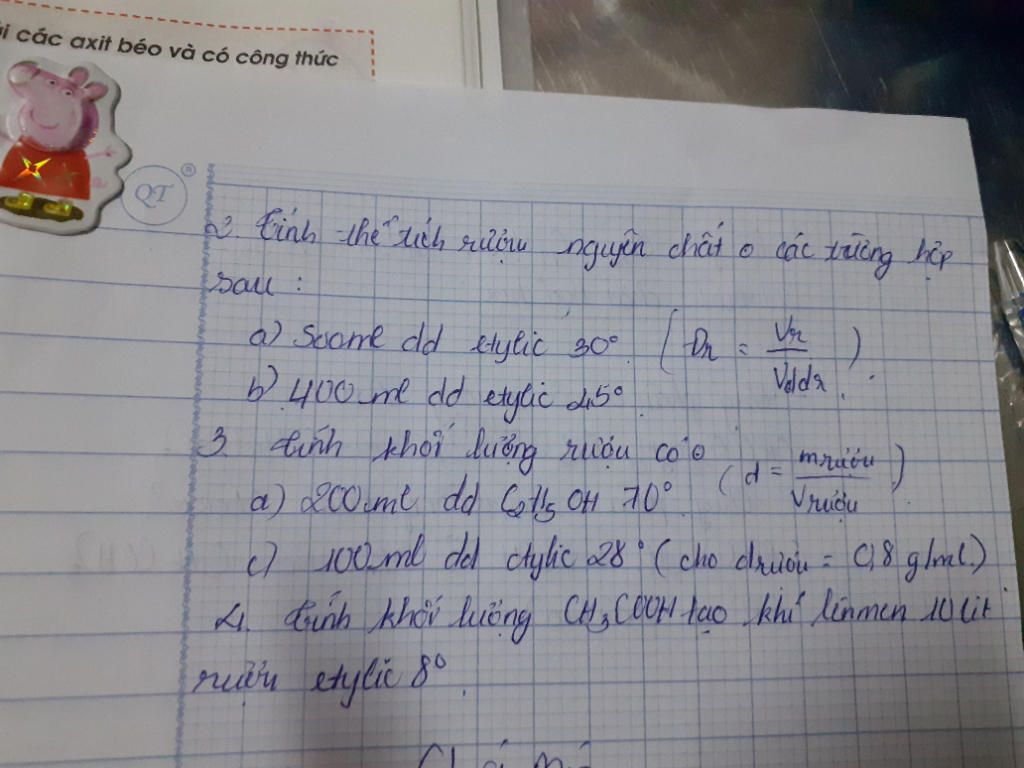 ại các axit béo và có công thức
QT ®
2. Tính thể tích rượu nguyên chất ở các trường hợp
sau :
a) 500ml dd etylic 30°. ( Dr = Vr / Vddr ) .
b) 400 ml dd etylic 45°.
3. tính khối lượng rượu có ở
( d = mrượu / Vrượu )
a) 200 ml dd C2H5OH 70°.
c) 100 ml dd etylic 28° ( cho drượu = 0,8 g/ml.)
4. tính khối lượng CH3COOH tạo khi lênmen 10 lít
rượu etylic 8°.